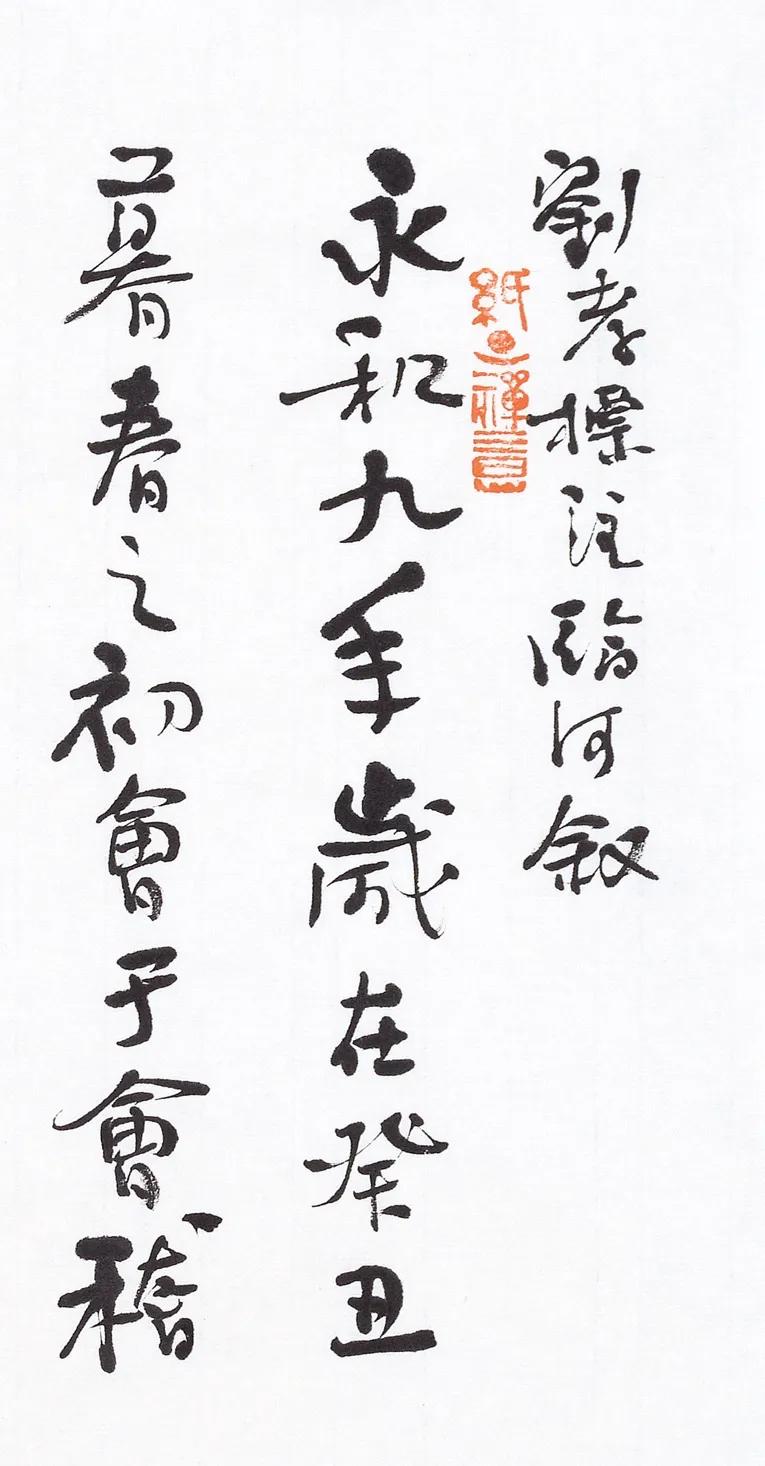 劉孝標注臨河叙
永和九年歲在癸丑
暮春之初會于會稽